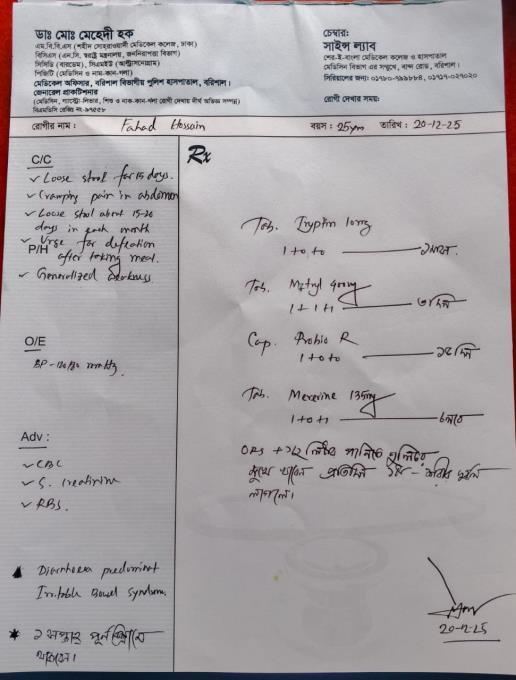 ডাঃ মোঃ মেহেদী হক
এম.বি.বি.এস (শহীদ সোহরাওয়ার্দী মেডিকেল কলেজ, ঢাকা)
বিসিএস (এন.সি. স্বরাষ্ট্র মন্ত্রনালয়, জননিরাপত্তা বিভাগ)
সিসিডি (বারডেম), সিএমইউ (আল্ট্রাসনোগ্রাম)
পিজিটি (মেডিসিন ও নাক-কান-গলা)
মেডিকেল অফিসার, বরিশাল বিভাগীয় পুলিশ হাসপাতাল, বরিশাল।
জেনারেল প্রাকটিশনার
(মেডিসিন, গ্যাস্ট্রো-লিভার, শিশু ও নাক-কান-গলা রোগী দেখায় দীর্ঘ অভিজ্ঞতা সম্পন্ন)
বিএমডিসি রেজিঃ নং-৯৭৫৫৮
চেম্বারঃ
সাইন্স ল্যাব
শের-ই-বাংলা মেডিকেল কলেজ ও হাসপাতাল
মেডিসিন বিভাগ এর সম্মুখে, বান্দ রোড, বরিশাল।
সিরিয়ালের জন্যঃ ০১৭৮০-৭৯৯৮৮৪, ০১৭১৭-০২৭০২০
রোগী দেখার সময়ঃ
রোগীর নাম : Fahad Hossain বয়স : 25ym তারিখ : 20-12-25
C/C
Loose stool for 15 days.
Cramping pain in abdomen
Loose stool about 15-20
days in each month
P/H
Urge for defection
after taking meal.
Generalized weakness
O/E
BP - 120/80 mmHg
Adv :
CBC
S. Creatinine
RBS.
Diarrhoea predominat
Irritable Bowel Syndrome.
১ সপ্তাহ পূর্ন বিশ্রামে
থাকবেন।
Rx
Tab. Tryptin 10mg
1+0+0
Tab. Metryl 400mg
1+1+1
Cap. Probio R
1+0+0
Tab. Meverine 135mg
1+0+1 চলবে
ORS + ১/২ লিটার পানিতে গুলিয়ে
খাবেন প্রতিদিন
20-12-25